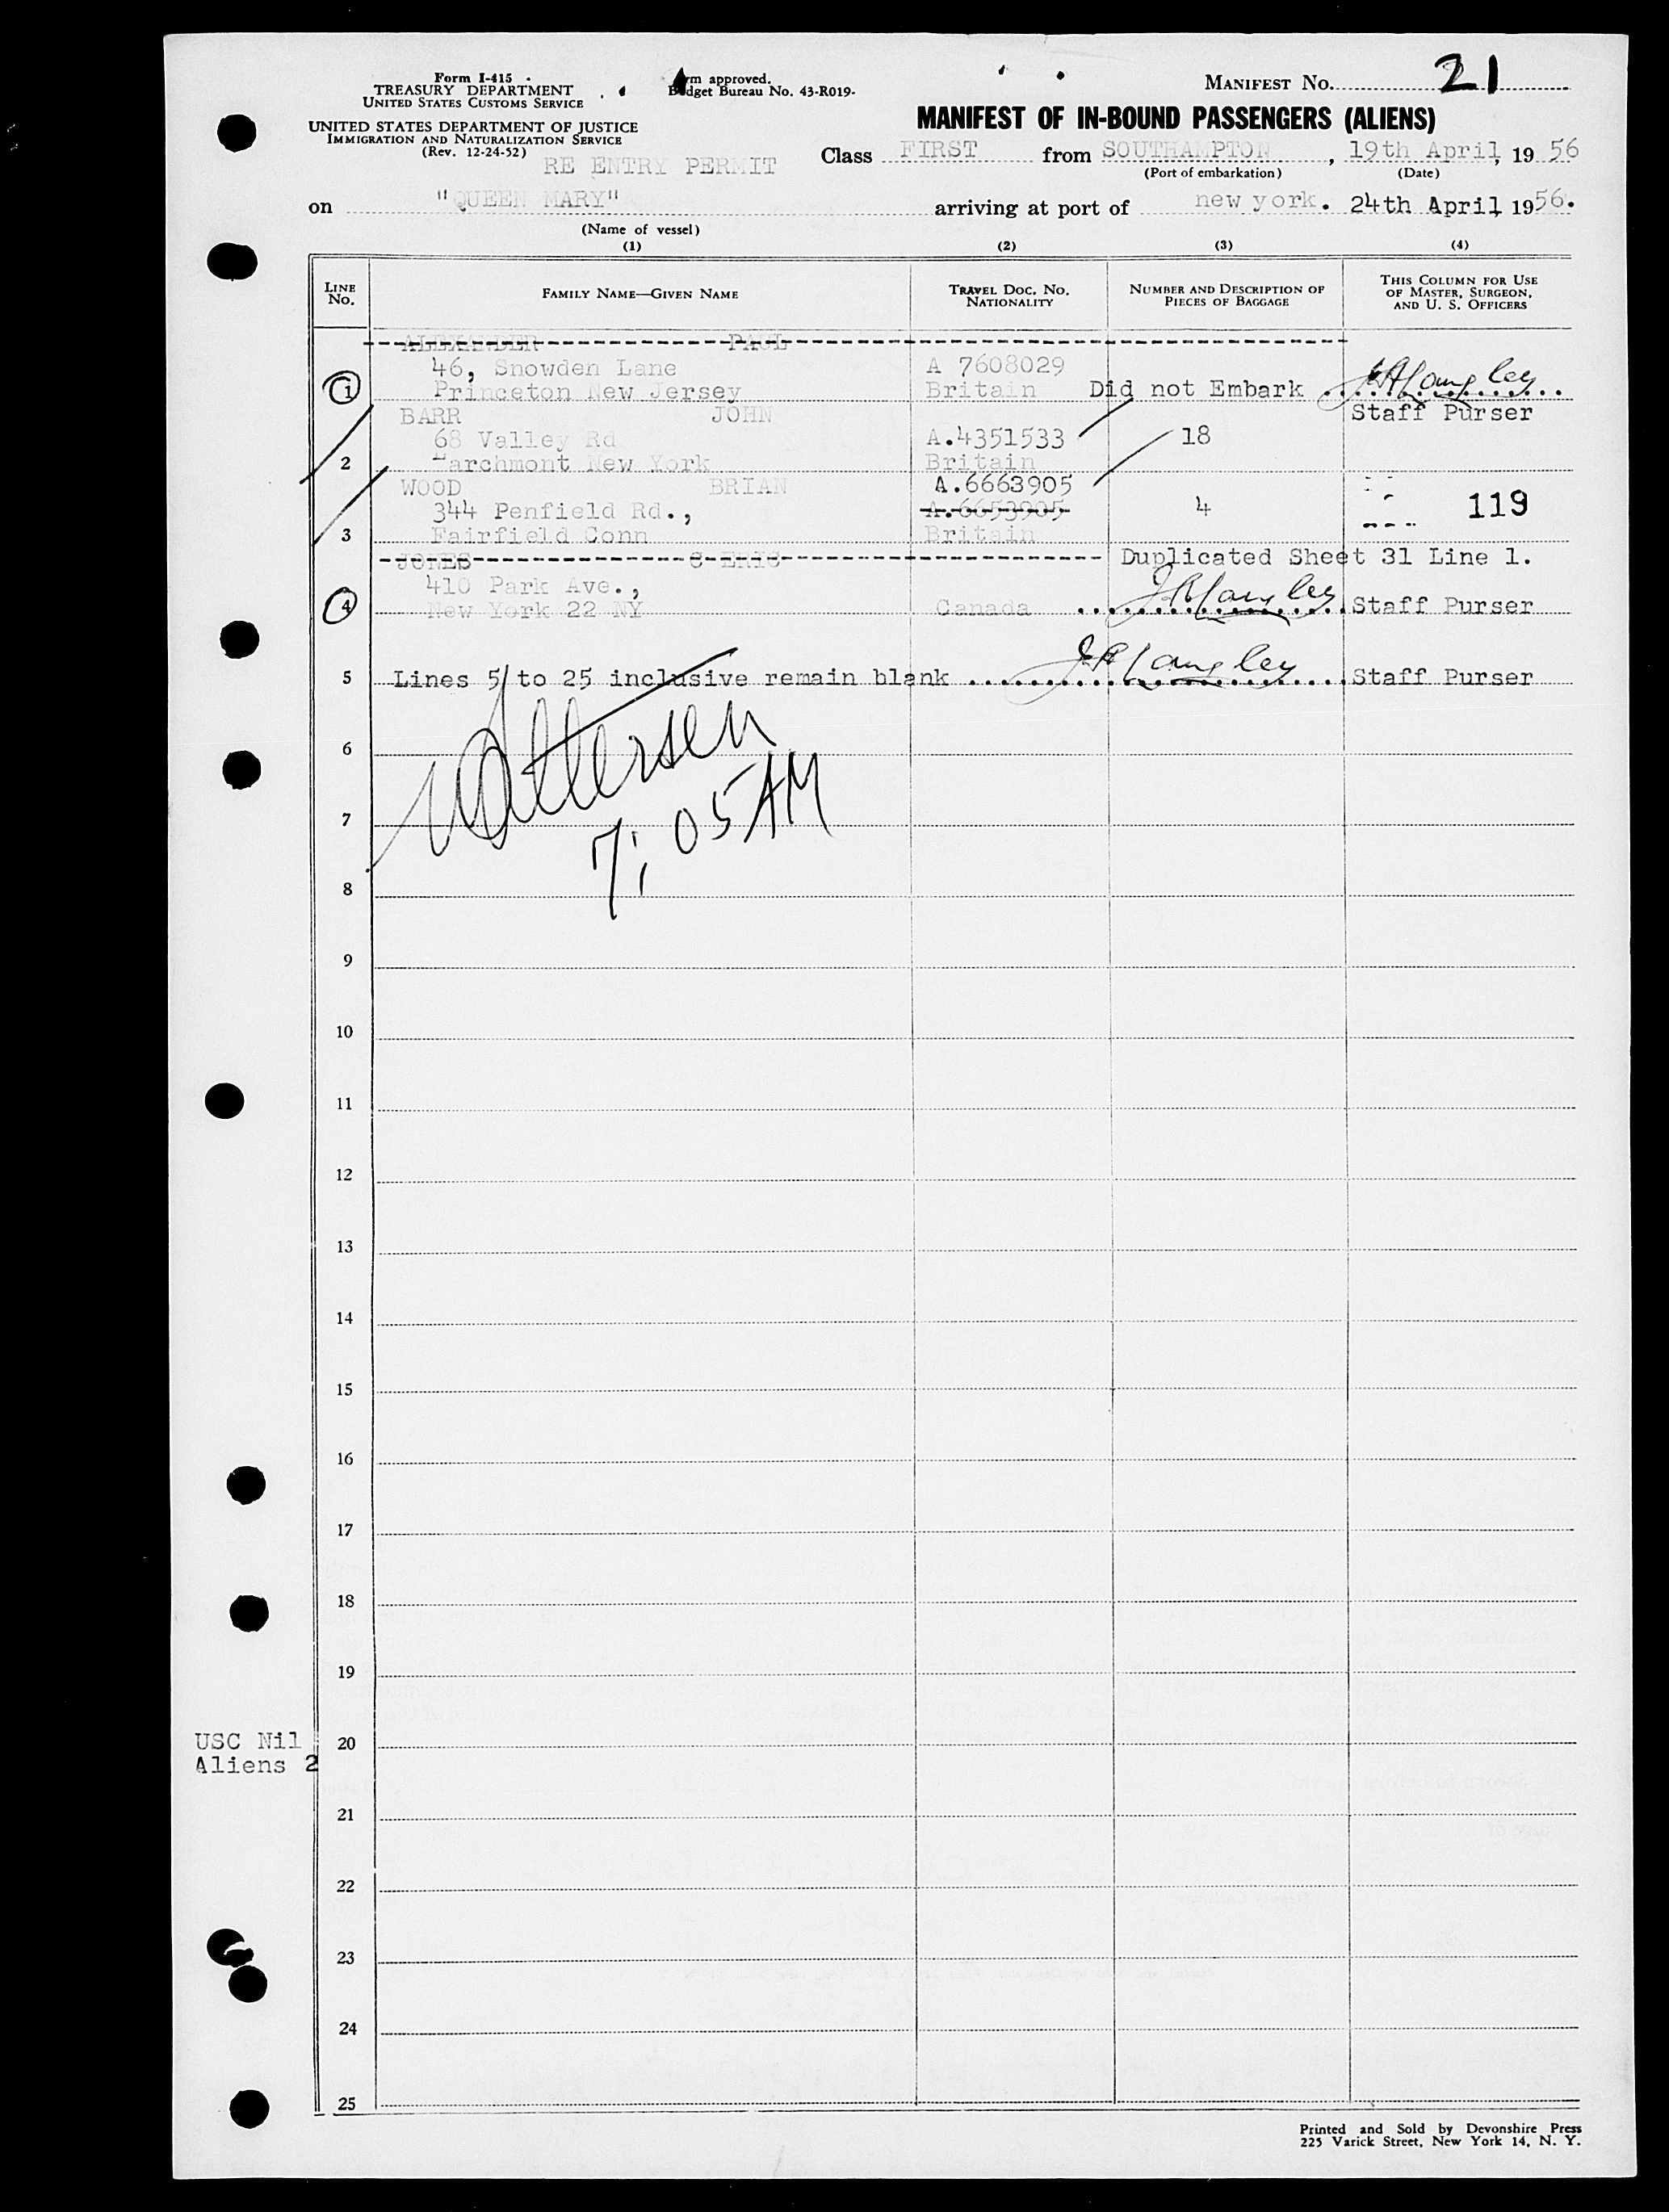 Form I-415
TREASURY DEPARTMENT
UNITED STATES CUSTOMS SERVICE
UNITED STATES DEPARTMENT OF JUSTICE
IMMIGRATION AND NATURALIZATION SERVICE
(Rev. 12-24-52)
approved.
Budget Bureau No. 43-R019-
MANIFEST No. 21
MANIFEST OF IN-BOUND PASSENGERS (ALIENS)
RE ENTRY PERMIT
Class FIRST from SOUTHAMPTON, 19th April, 19 56
(Port of embarkation) (Date)
on "QUEEN MARY" arriving at port of new york. 24th April 1956.
(Name of vessel)
(1) (2) (3) (4)
LINE No. FAMILY NAME—GIVEN NAME TRAVEL DOC. NO. NATIONALITY NUMBER AND DESCRIPTION OF PIECES OF BAGGAGE THIS COLUMN FOR USE OF MASTER, SURGEON, AND U. S. OFFICERS
ALEXANDER PAUL
46, Snowden Lane A 7608029
1 Princeton New Jersey Britain Did not Embark JALangley
BARR JOHN Staff Purser
68 Valley Rd A.4351533 18
2 Larchmont New York Britain
WOOD BRIAN A.6663905
344 Penfield Rd., A.6653905 4 119
3 Fairfield Conn Britain
JONES C ERIC Duplicated Sheet 31 Line 1.
410 Park Ave.,
4 New York 22 NY Canada JALangley Staff Purser
5 Lines 5 to 25 inclusive remain blank JALangley Staff Purser
6
7
7:05 AM
8
9
10
11
12
13
14
15
16
17
18
19
USC Nil 20
Aliens 2
21
22
23
24
25
Printed and Sold by Devonshire Press
225 Varick Street, New York 14, N. Y.